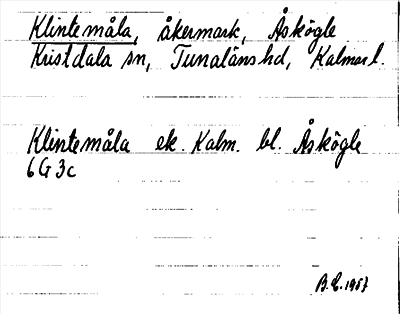 Klintemåla, åkermark, Åskögle
Kristdala sn, Tunaläns hd, Kalmar l.
Klintemåla ek. Kalm. bl. Åskögle
6G3c
1957